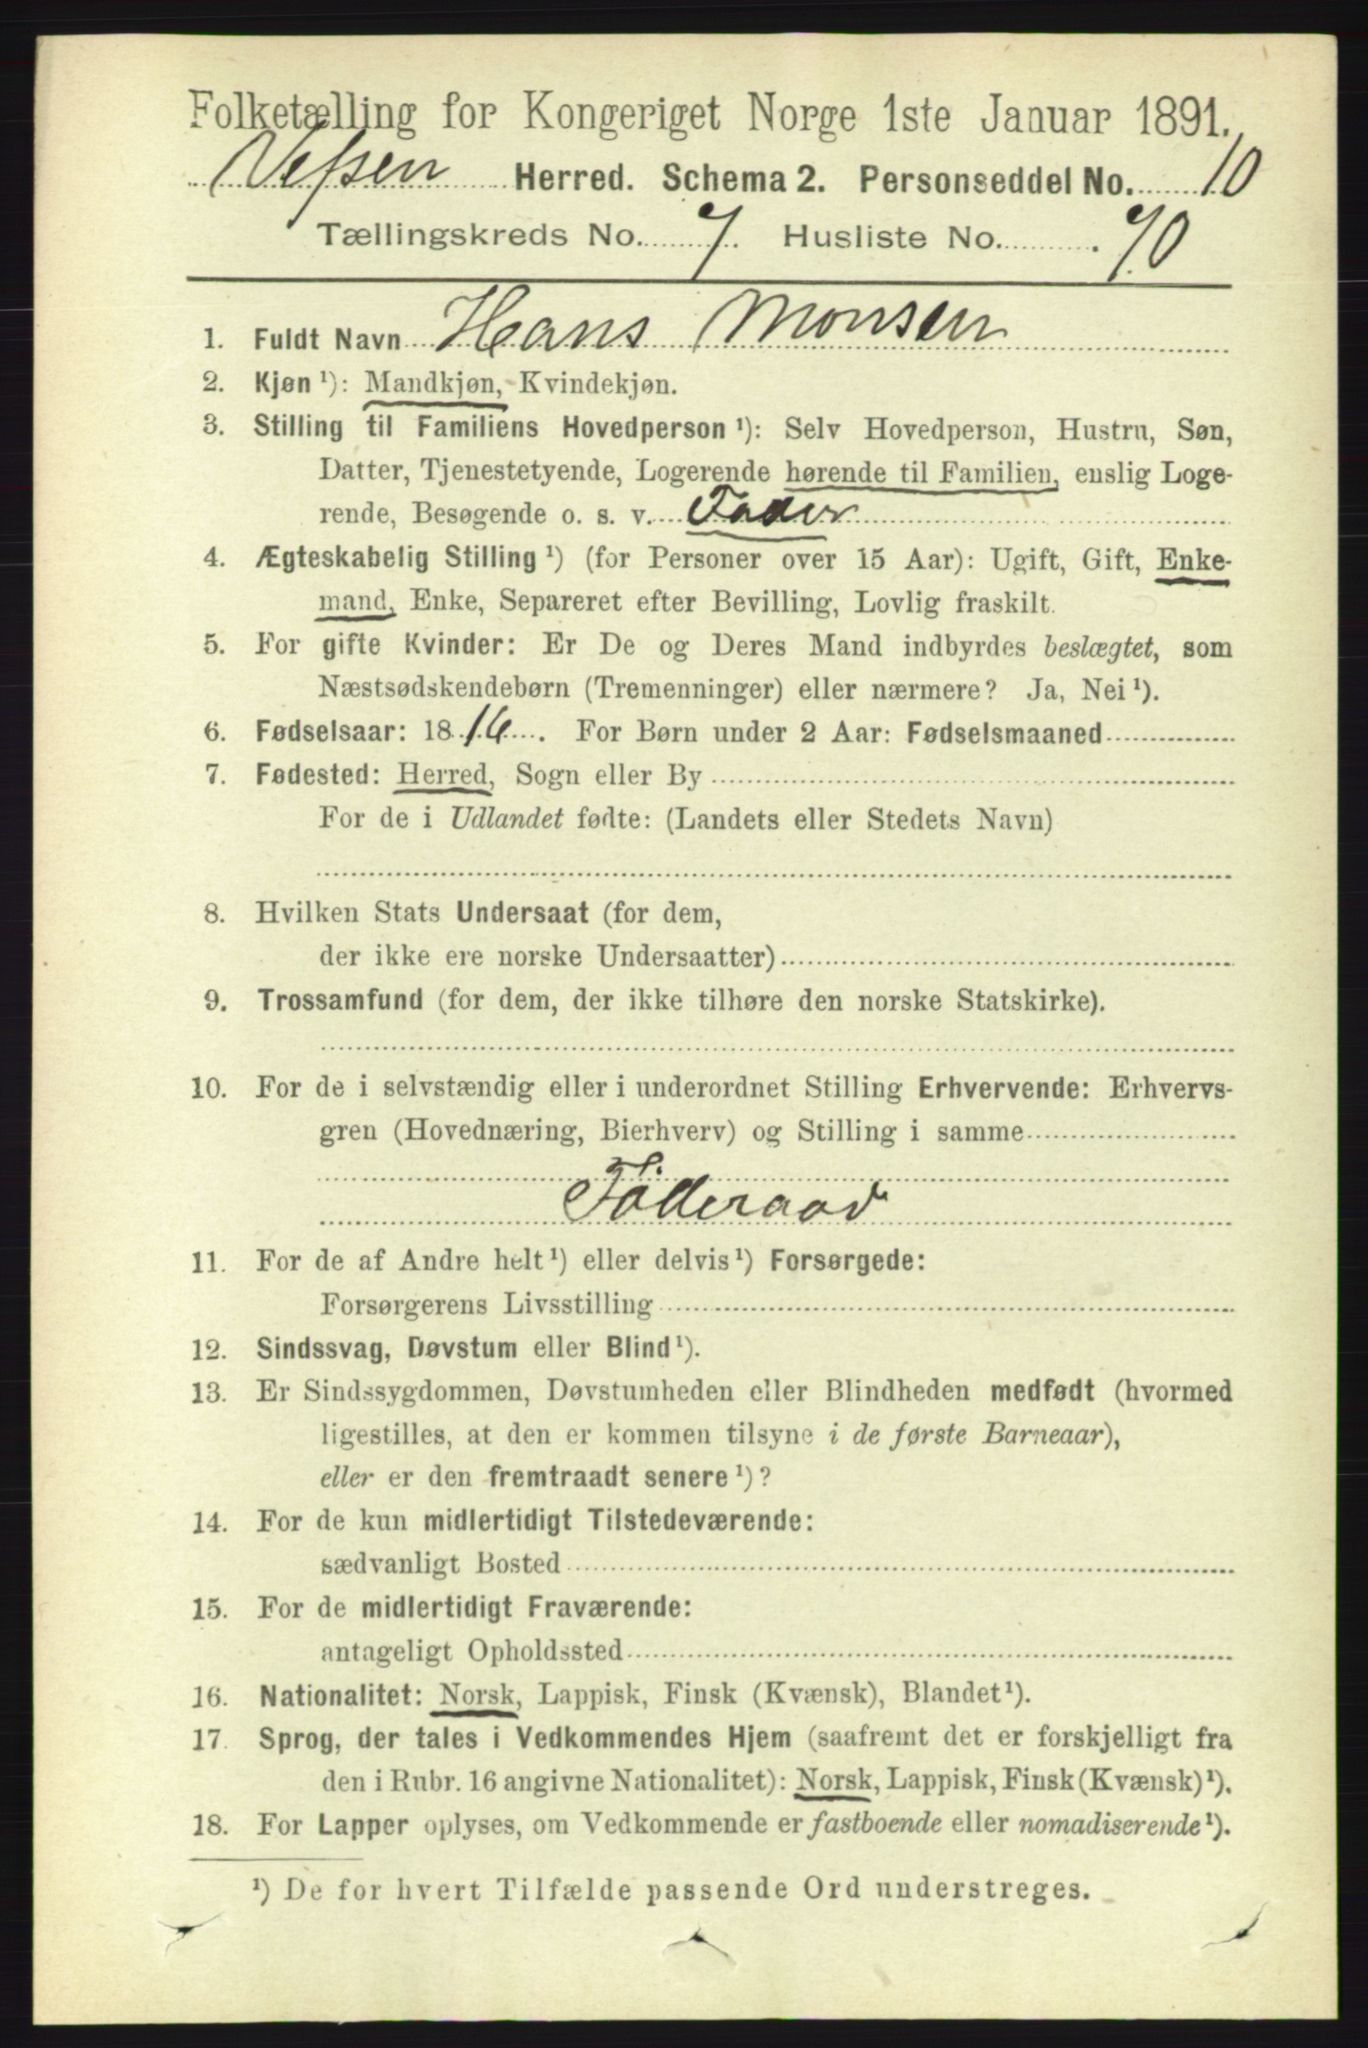 Folketælling for Kongeriget Norge 1ste Januar 1891.
Vefsen Herred. Schema 2. Personseddel No. 10
Tællingskreds No. 7. Husliste No. 70
1. Fuldt Navn Hans Monsen
2. Kjøn ¹): Mandkjøn, Kvindekjøn.
3. Stilling til Familiens Hovedperson ¹): Selv Hovedperson, Hustru, Søn,
Datter, Tjenestetyende, Logerende hørende til Familien, enslig Loge-
rende, Besøgende o. s. v. Fader
4. Ægteskabelig Stilling ¹) (for Personer over 15 Aar): Ugift, Gift, Enke-
mand, Enke, Separeret efter Bevilling, Lovlig fraskilt.
5. For gifte Kvinder: Er De og Deres Mand indbyrdes beslægtet, som
Næstsødskendebørn (Tremenninger) eller nærmere? Ja, Nei ¹).
6. Fødselsaar: 1816. For Børn under 2 Aar: Fødselsmaaned
7. Fødested: Herred, Sogn eller By
For de i Udlandet fødte: (Landets eller Stedets Navn)
8. Hvilken Stats Undersaat (for dem,
der ikke ere norske Undersaatter)
9. Trossamfund (for dem, der ikke tilhøre den norske Statskirke).
10. For de i selvstændig eller i underordnet Stilling Erhvervende: Erhvervs-
gren (Hovednæring, Bierhverv) og Stilling i samme
Föderaad
11. For de af Andre helt ¹) eller delvis ¹) Forsørgede:
Forsørgerens Livsstilling
12. Sindssvag, Døvstum eller Blind ¹).
13. Er Sindssygdommen, Døvstumheden eller Blindheden medfødt (hvormed
ligestilles, at den er kommen tilsyne i de første Barneaar),
eller er den fremtraadt senere ¹)?
14. For de kun midlertidigt Tilstedeværende:
sædvanligt Bosted
15. For de midlertidigt Fraværende:
antageligt Opholdssted
16. Nationalitet: Norsk, Lappisk, Finsk (Kvænsk), Blandet ¹).
17. Sprog, der tales i Vedkommendes Hjem (saafremt det er forskjelligt fra
den i Rubr. 16 angivne Nationalitet): Norsk, Lappisk, Finsk (Kvænsk) ¹).
18. For Lapper oplyses, om Vedkommende er fastboende eller nomadiserende ¹).
¹) De for hvert Tilfælde passende Ord understreges.